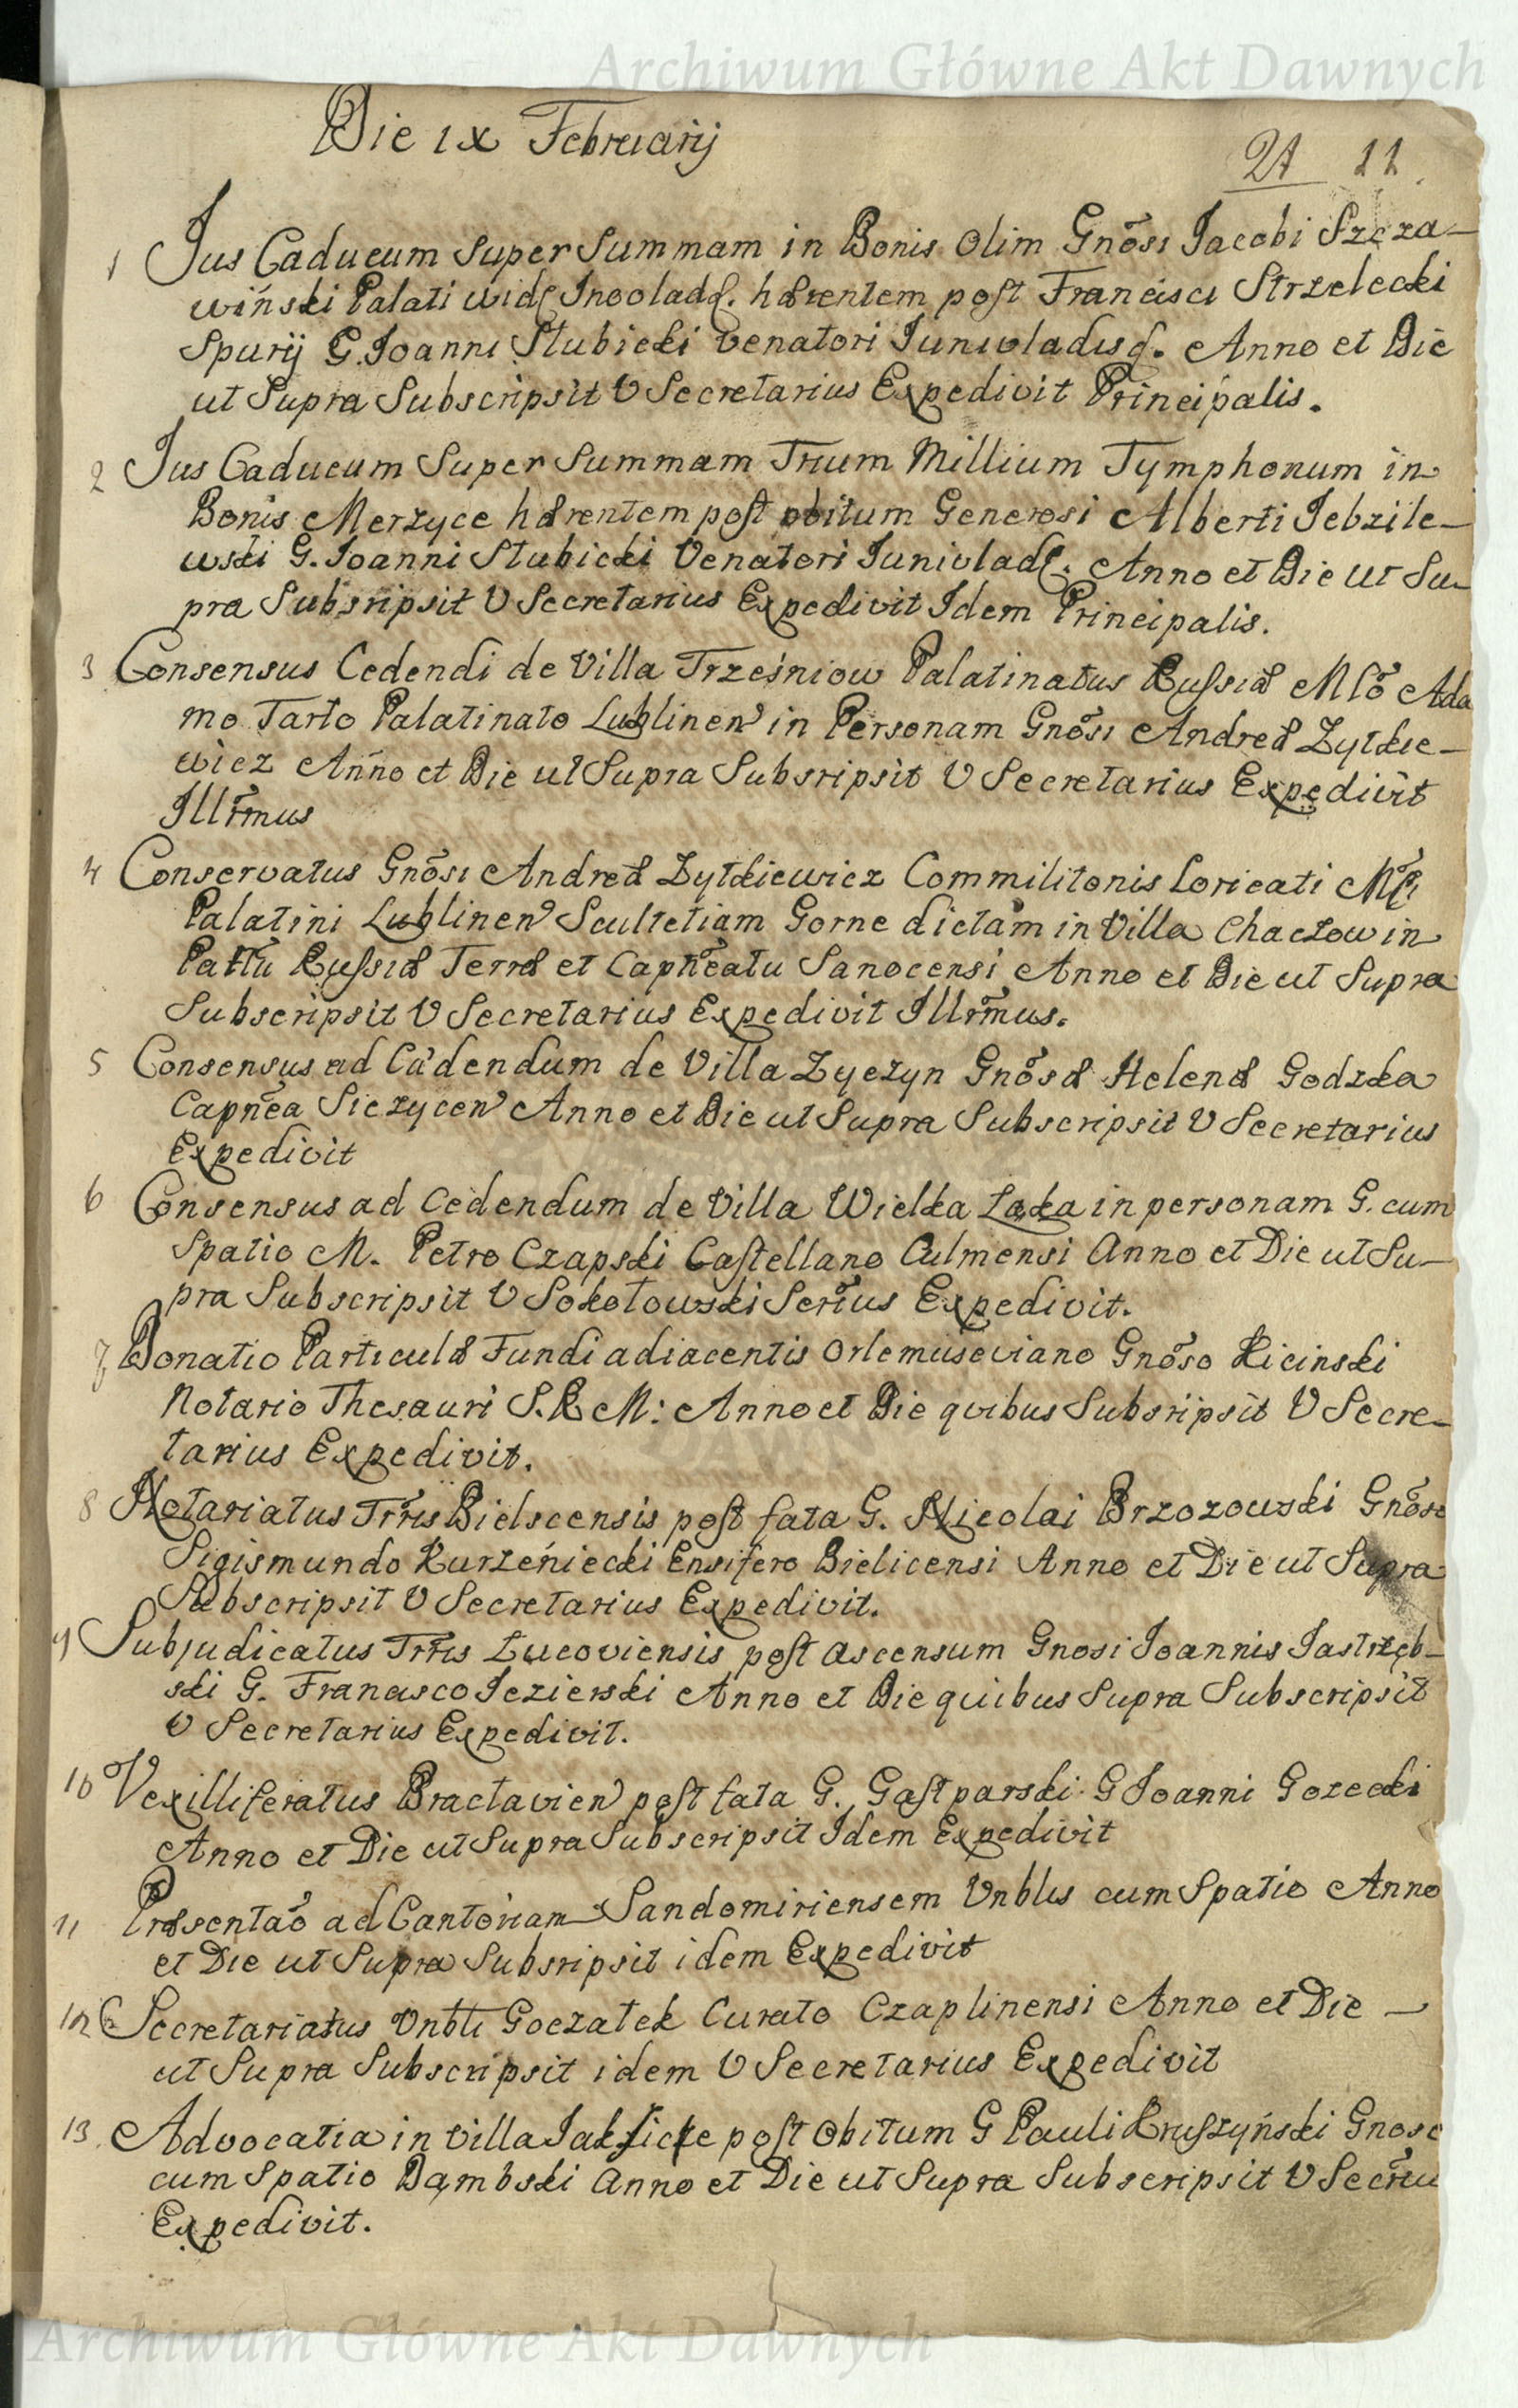 Archiwum Główne Akt Dawnych
Die IX Februarij
21 11
1 Jus Caducum Super Summam in Bonis Olim Gnõsi Jacobi Szcza-
wiński Palati hærentem post Francisci Strzelecki
Spurij G. Joanni Słubicki Venatori Junivladisſ. Anno et Die
ut Supra Subscripsit V Secretarius Expedivit Principalis.
2 Jus Caducum Super Summam Trium Millium Tymphonum in
Bonis Merzyce hærentem post obitum Generosi Alberti Jebzile-
wski G. Joanni Słubicki Venatori Junivladſ. Anno et Die ut Su-
pra Subsripsit V Secretarius Expedivit Idem Principalis.
3 Consensus Cedendi de Villa Trześniow Palatinatus Russiæ Mſõ Ada
mo Tarło Palatinato Lublinen in Personam Gnõsi Andreæ Zytkie-
wicz Anno et Die ut Supra Subsripsit V Secretarius Expedivit
Illr̃mus
4 Conservatus Gnõsi Andreæ Zytkiewicz Commilitonis Loricati
Palatini Lublinen Scultetiam Gorne dictam in Villa Chaczow in
Pałłu Russiæ Terræ et Capñeatu Sanocensi Anno et Die ut Supra
Subscripsit V Secretarius Expedivit Illr̃mus.
5 Consensus ad Cædendum de Villa Zyczyn Gnõsæ Helenæ Godzka
Capnẽa Siczycen Anno et Die ut Supra Subscripsit V Secretarius
Expedivit
6 Consensus ad Cedendum de Villa Wielka Łąka in personam G. cum
Spatio M. Petro Czapski Castellano Culmensi Anno et Die ut Su-
pra Subscripsit V Sokołowski Serĩus Expedivit.
7 Donatio Particulæ Fundi adiacentis Orlemuseviano Gnõso Kicinski
Notario Thesauri S. R. M: Anno et Die quibus Subsripsit V Secre-
tarius Expedivit.
8 Notariatus Tr̃ris Bielscensis post fata G. Nicolai Brzozowski Gnõso
Sigismundo Kurzeniecki Ensifero Bielicensi Anno et Die ut Supra
Subscripsit V Secretarius Expedivit.
9 Subjudicatus Tr̃ris Łucoviensis post ascensum Gnosi Joannis Jastrzęb-
ski G. Francisco Jezierski Anno et Die quibus Supra Subscripsit
V Secretarius Expedivit.
10 Vexilliferatus Bractavien post fata G. Gastparski G Joanni Gozecki
Anno et Die ut Supra Subscripsit Idem Expedivit
11 Præsentaõ ad Cantoriam Sandomiriensem Vnblis cum Spatio Anno
et Die ut Supra Subsripsit idem Expedivit
12 Secretariatus Vnbli Goczałek Curato Czaplinensi Anno et Die -
ut Supra Subscripsit idem V Secretarius Expedivit
13. Advocatia in Villa post Obitum G Pauli Kruszyński Gnoso
cum Spatio Dąmbski Anno et Die ut Supra Subscripsit V Secr̃iu
Expedivit.
Archiwum Główne Akt Dawnych